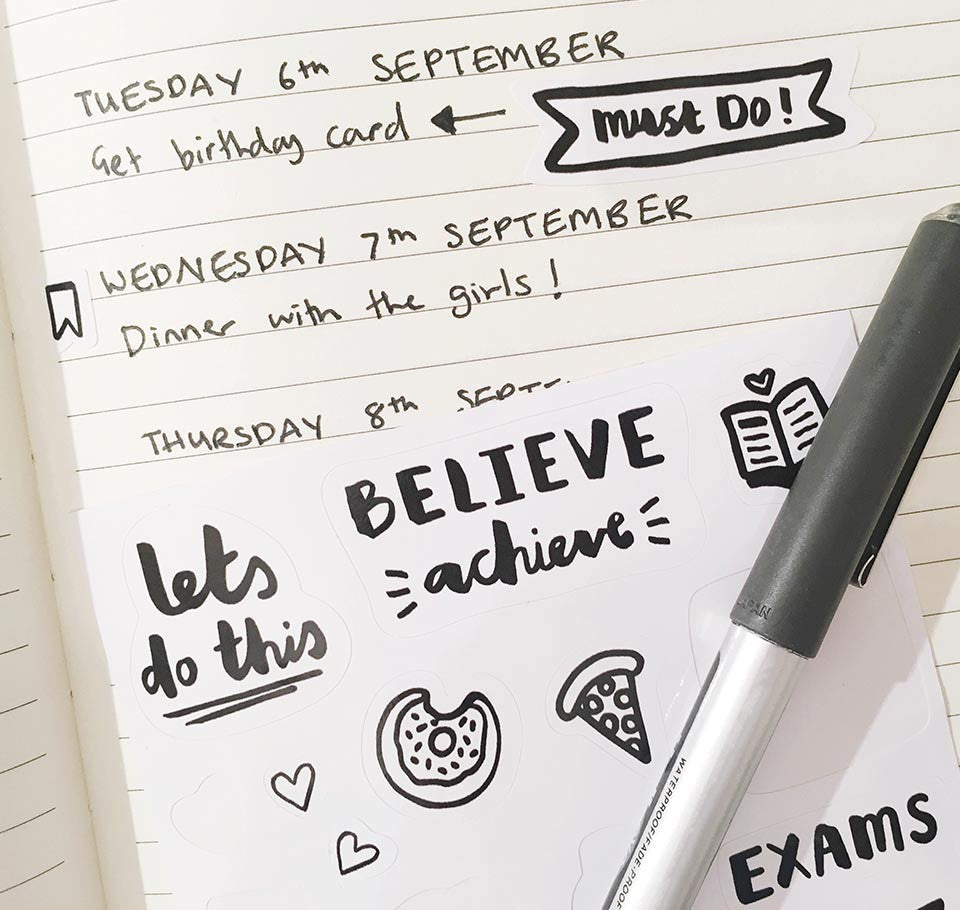 TUESDAY 6th SEPTEMBER
Get birthday card
must Do!
WEDNESDAY 7th SEPTEMBER
Dinner with the girls!
THURSDAY 8th
BELIEVE
achieve
lets
do this
JAPAN
WATERPROOF/FADE-PROOF
EXAMS